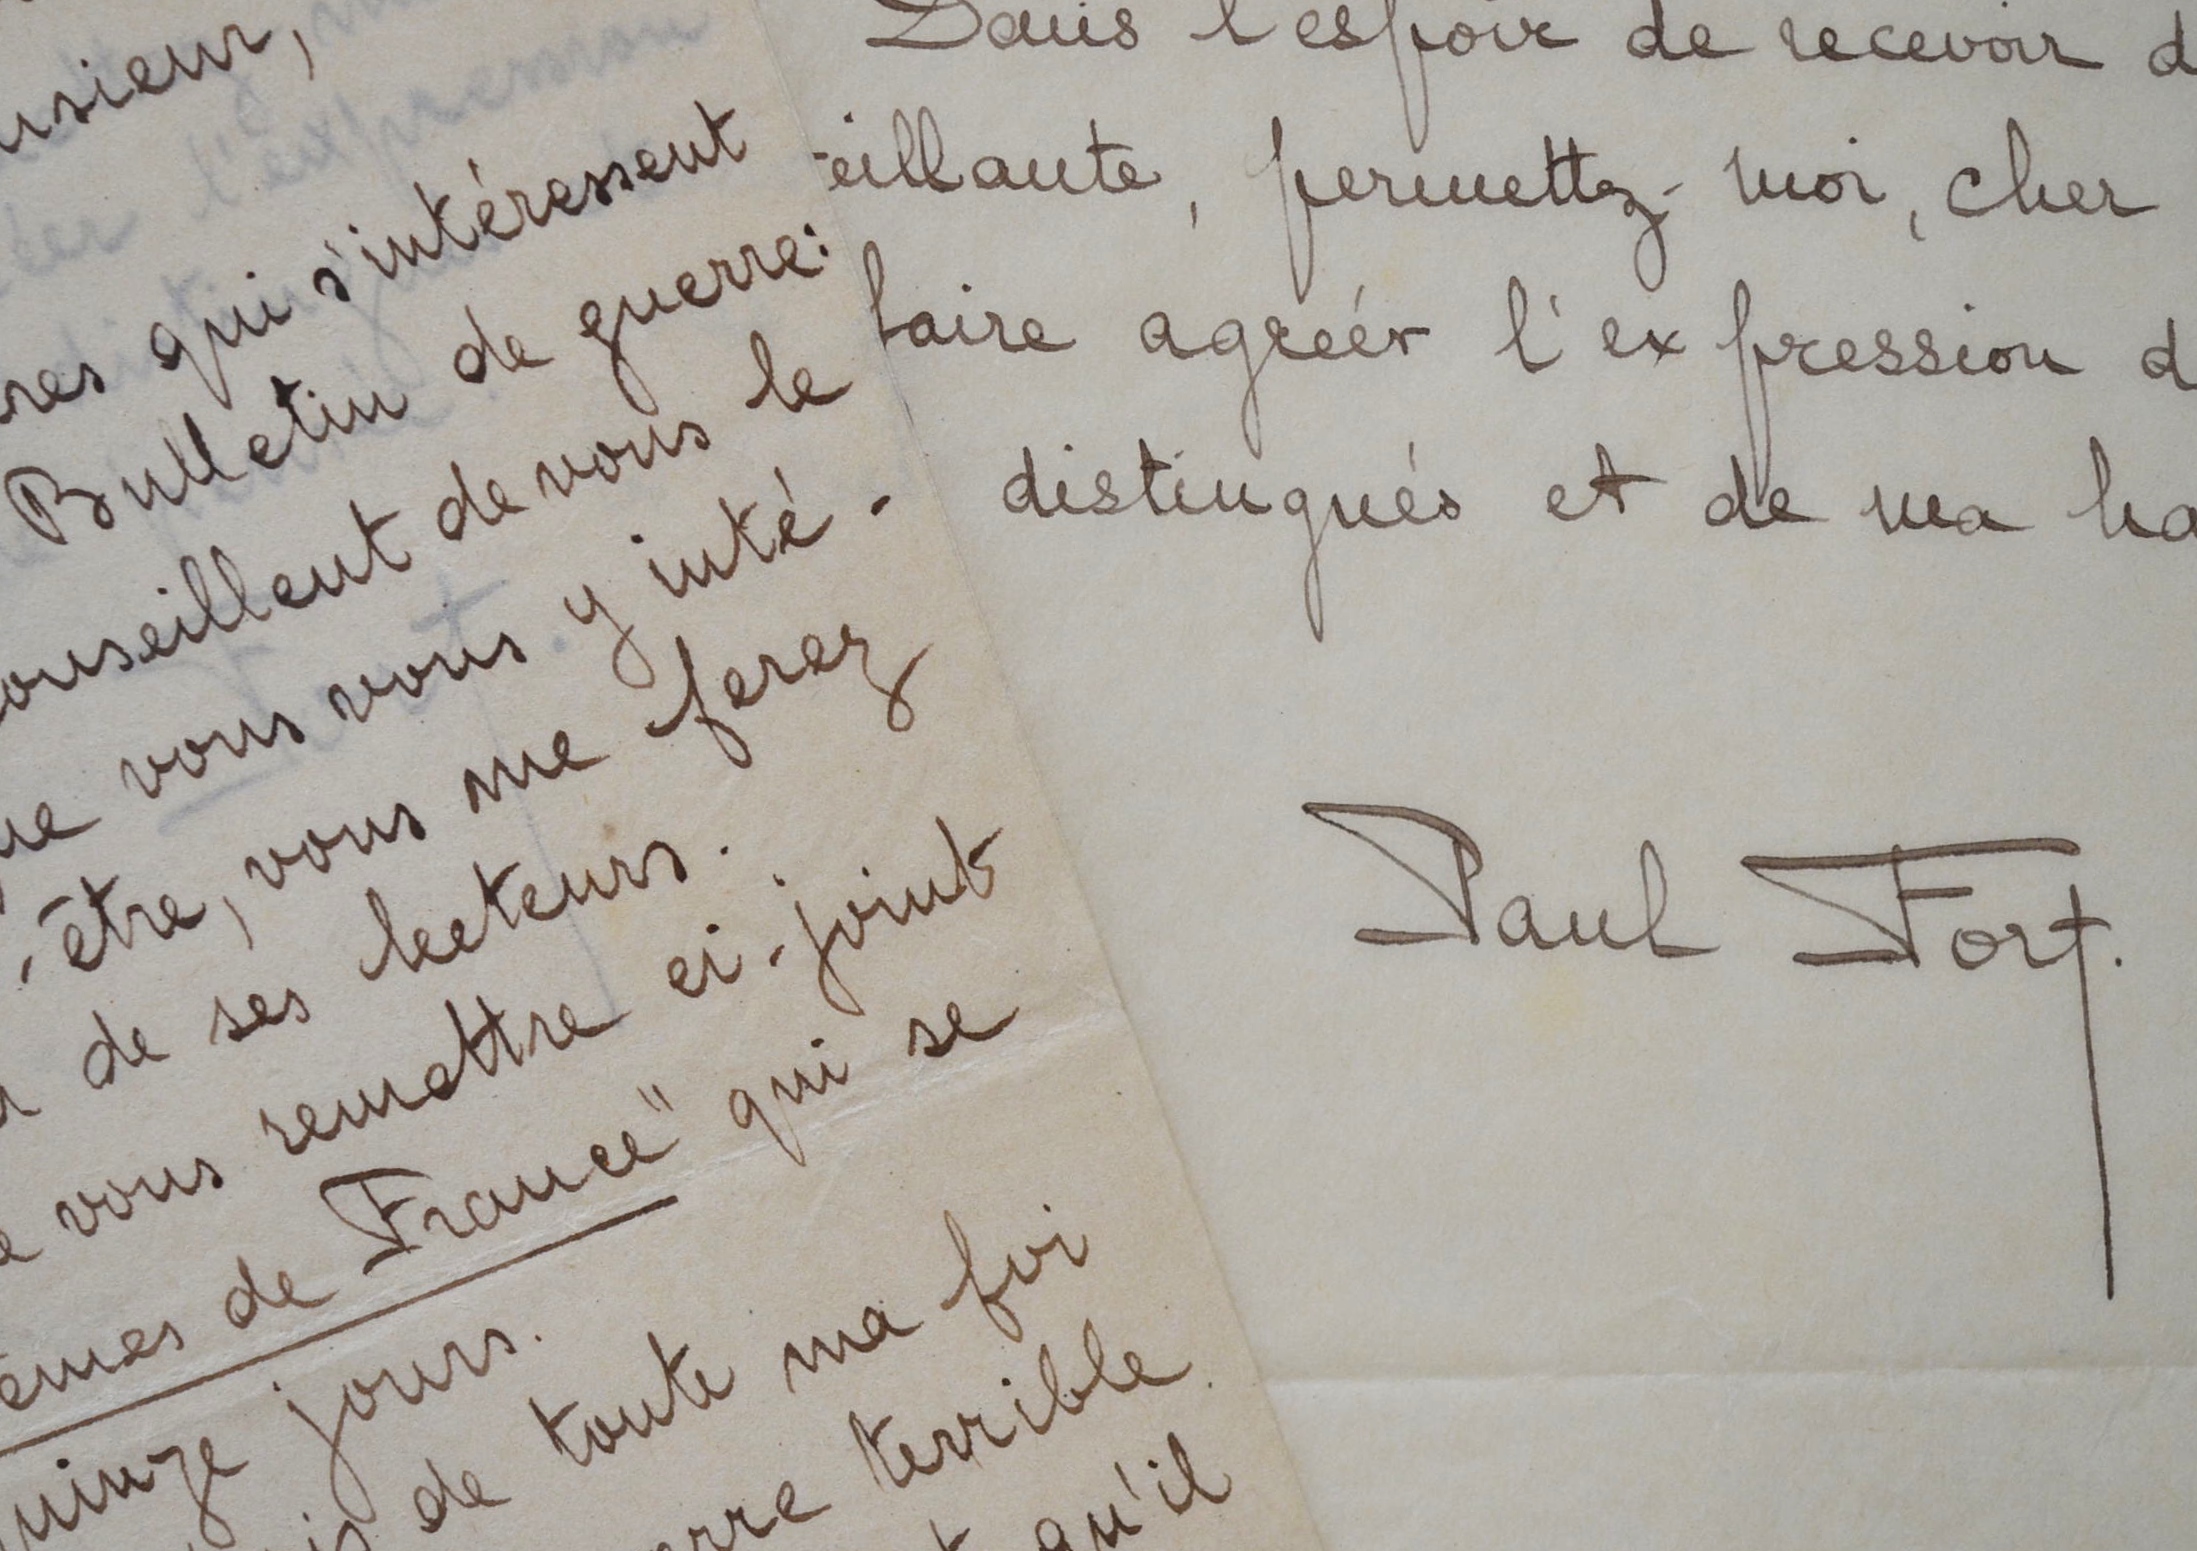 usieur,
res qui s'intéressent
Bulletin de guerre:
onseillent de vous le
ue vous vous y inté-
-être, vous me ferez
de ses lecteurs.
vous remettre ci-joint
èmes de France" qui se
uinze jours.
is de toute ma foi
erre terrible
qu'il
Dans l'espoir de recevoir d
eillante, permettez-moi, cher
faire agréér l'expression d
distingués et de ma ha
Paul Fort.